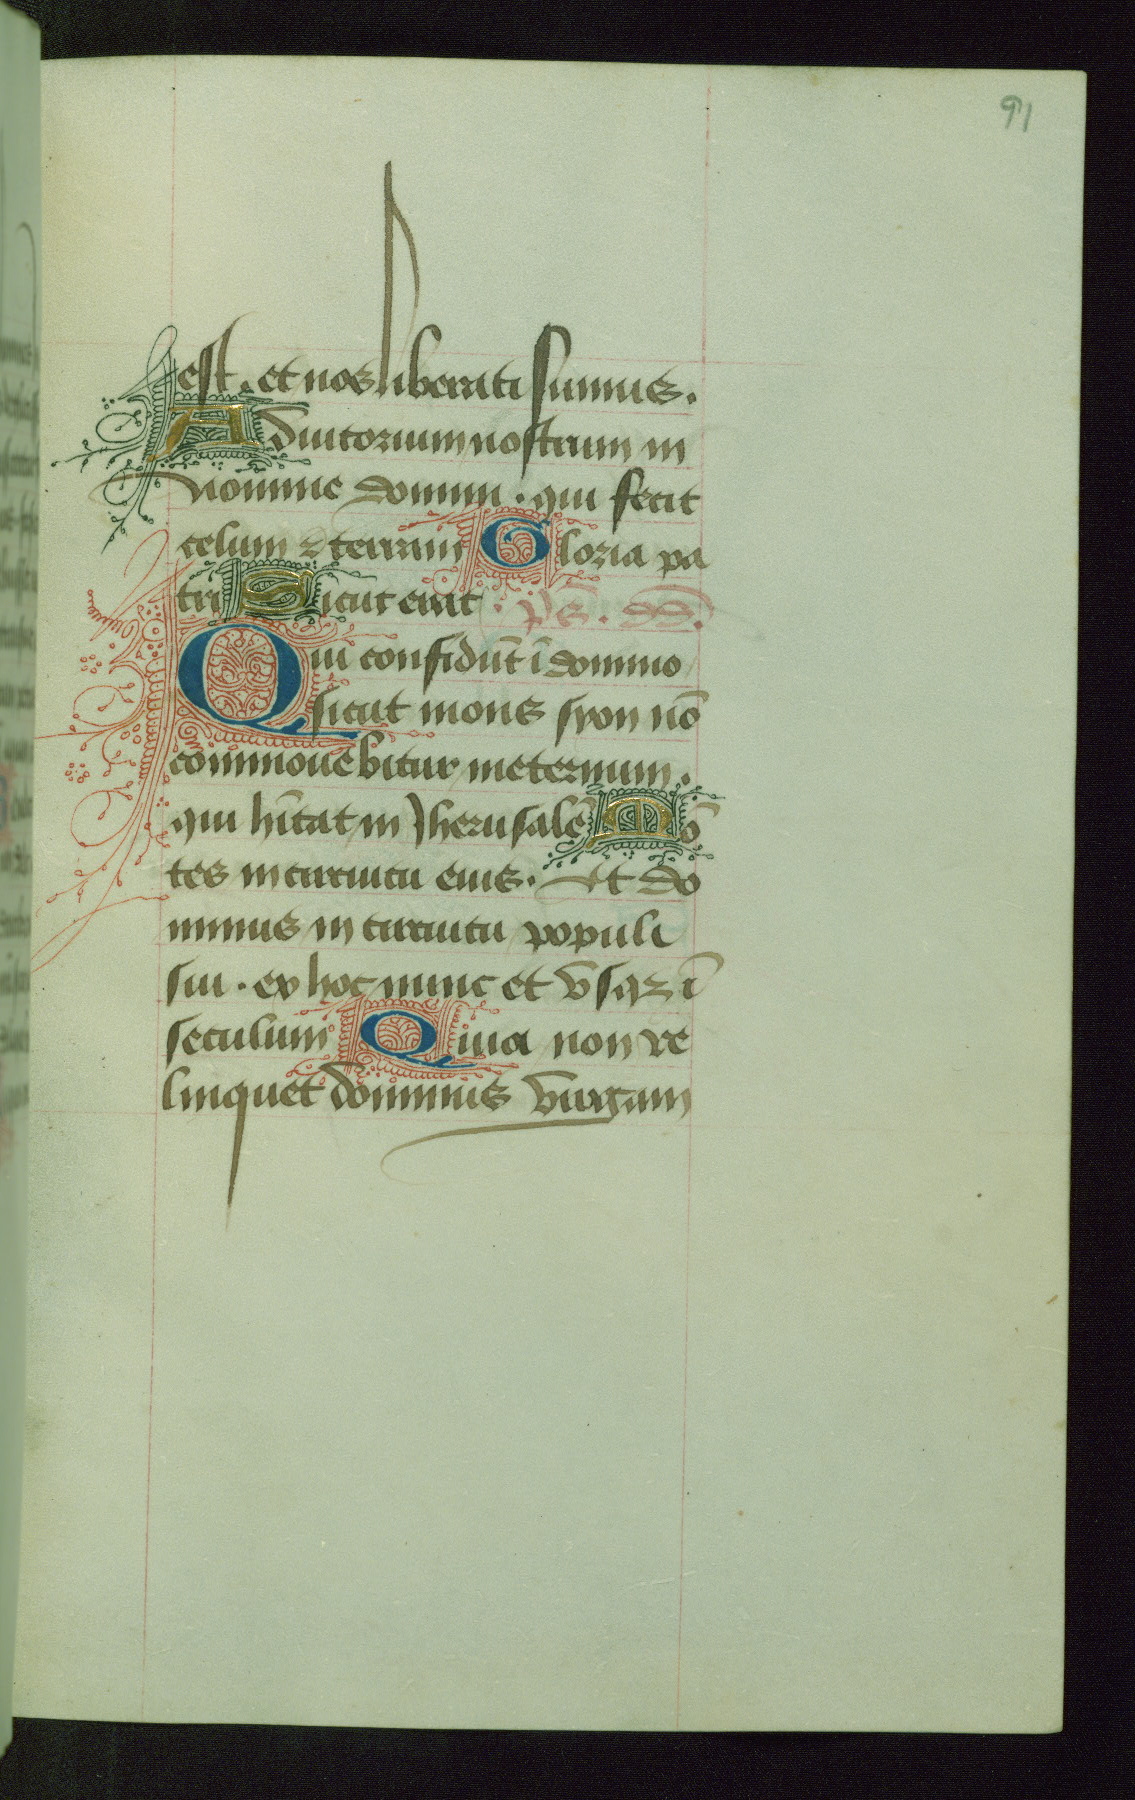 91
est. et nos liberati sumus.
Adiutorium nostrum in
nomine domini. qui fecit
celum ⁊ terram Gloria pa
tri Sicut erat. ps̄. dd̄.
Qui confidūt ī domino
sicut mons syon nō
commouebitur ineternum.
qui hītat in Jherusalē Mō
tes in circuitu eius. Et do
minus in circuitu populi
sui. ex hoc nunc et vsqꝫ ī
seculum Quia non re
linquet dominus virgam